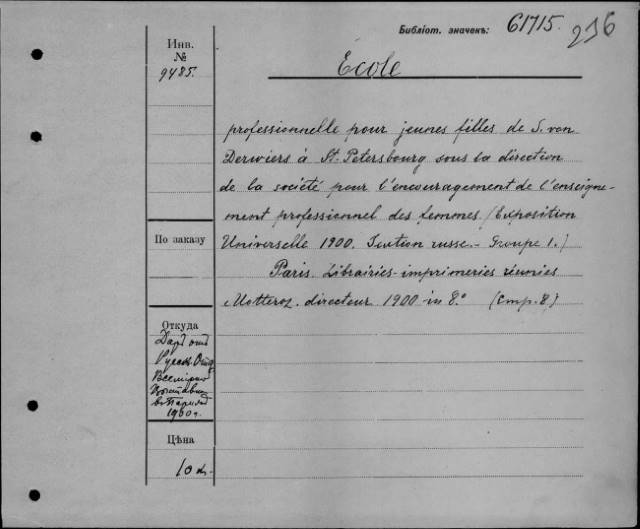 Библіот. значекъ: 61715. 236
Инв.
№
9485.
École
professionnelle pour jeunes filles de S. von
Derwiers à St. Petersbourg sous la direction
de la société pour l'encouragement de l'enseigne-
ment professionnel des femmes (Exposition
Universelle 1900. Section russe.- Groupe 1.)
Paris. Librairies-imprimeries réunies
Motteroz. directeur 1900 in 8.º
По заказу
Откуда
Даръ отъ
Русск. Отд.
Всемірной
Выставки
въ Парижѣ
1900 г.
Цѣна
10 к.